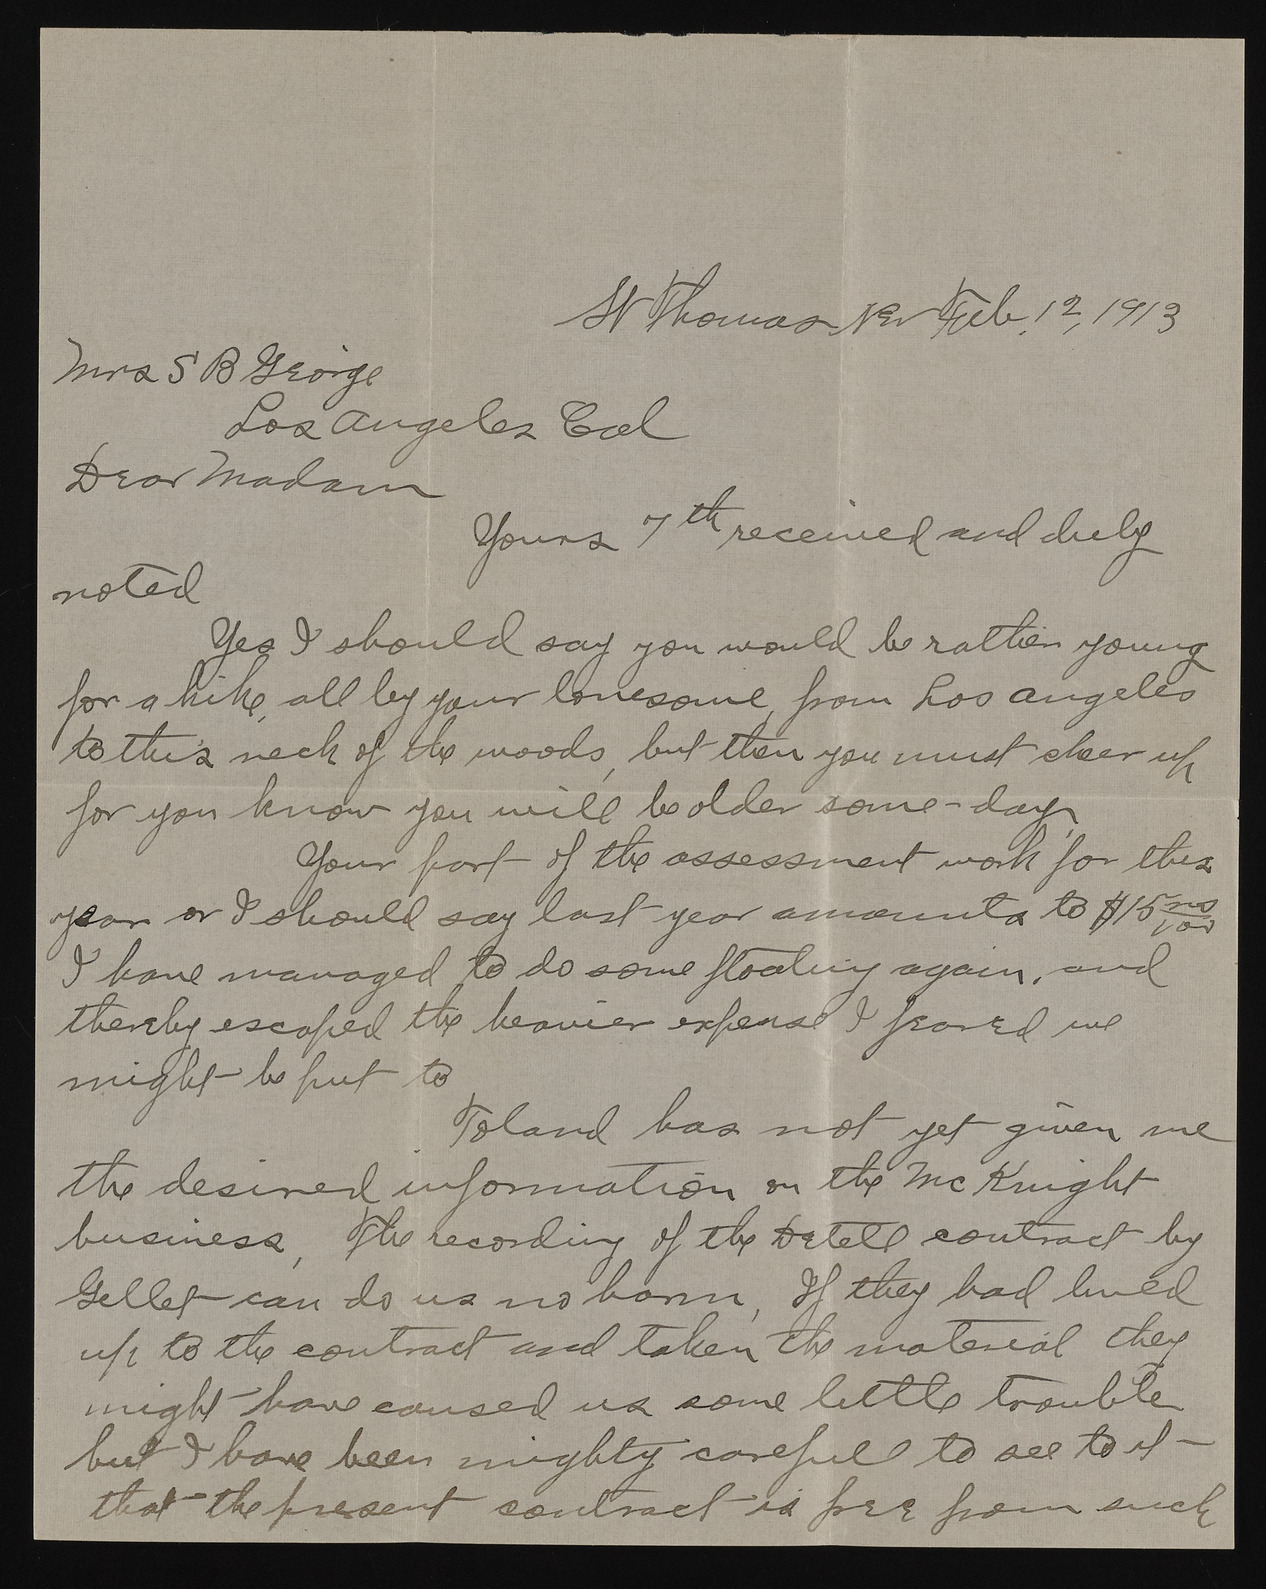 St Thomas Nev Feb. 12, 1913
Mrs S B George
Los Angeles Cal
Dear Madam
Yours 7th received and duly
noted
Yes I should say you would be rather young
for a hike, all by your lonesome, from Los Angeles
to this neck of the woods, but then you must cheer up
for you know you will be older some-day,
Your part of the assessment work for this
year or I should say last year amounts to $15 no/100
I have managed to do some floating again, and
thereby escaped the heavier expense I feared we
might be put to
Toland has not yet given me
the desired information on the McKnight
business, The recording of the Detell contract by
Gellet can do us no harm, If they had lived
up to the contract and taken the material they
might have caused us some little trouble
but I have been mighty careful to see to it
that the present contract is free from such